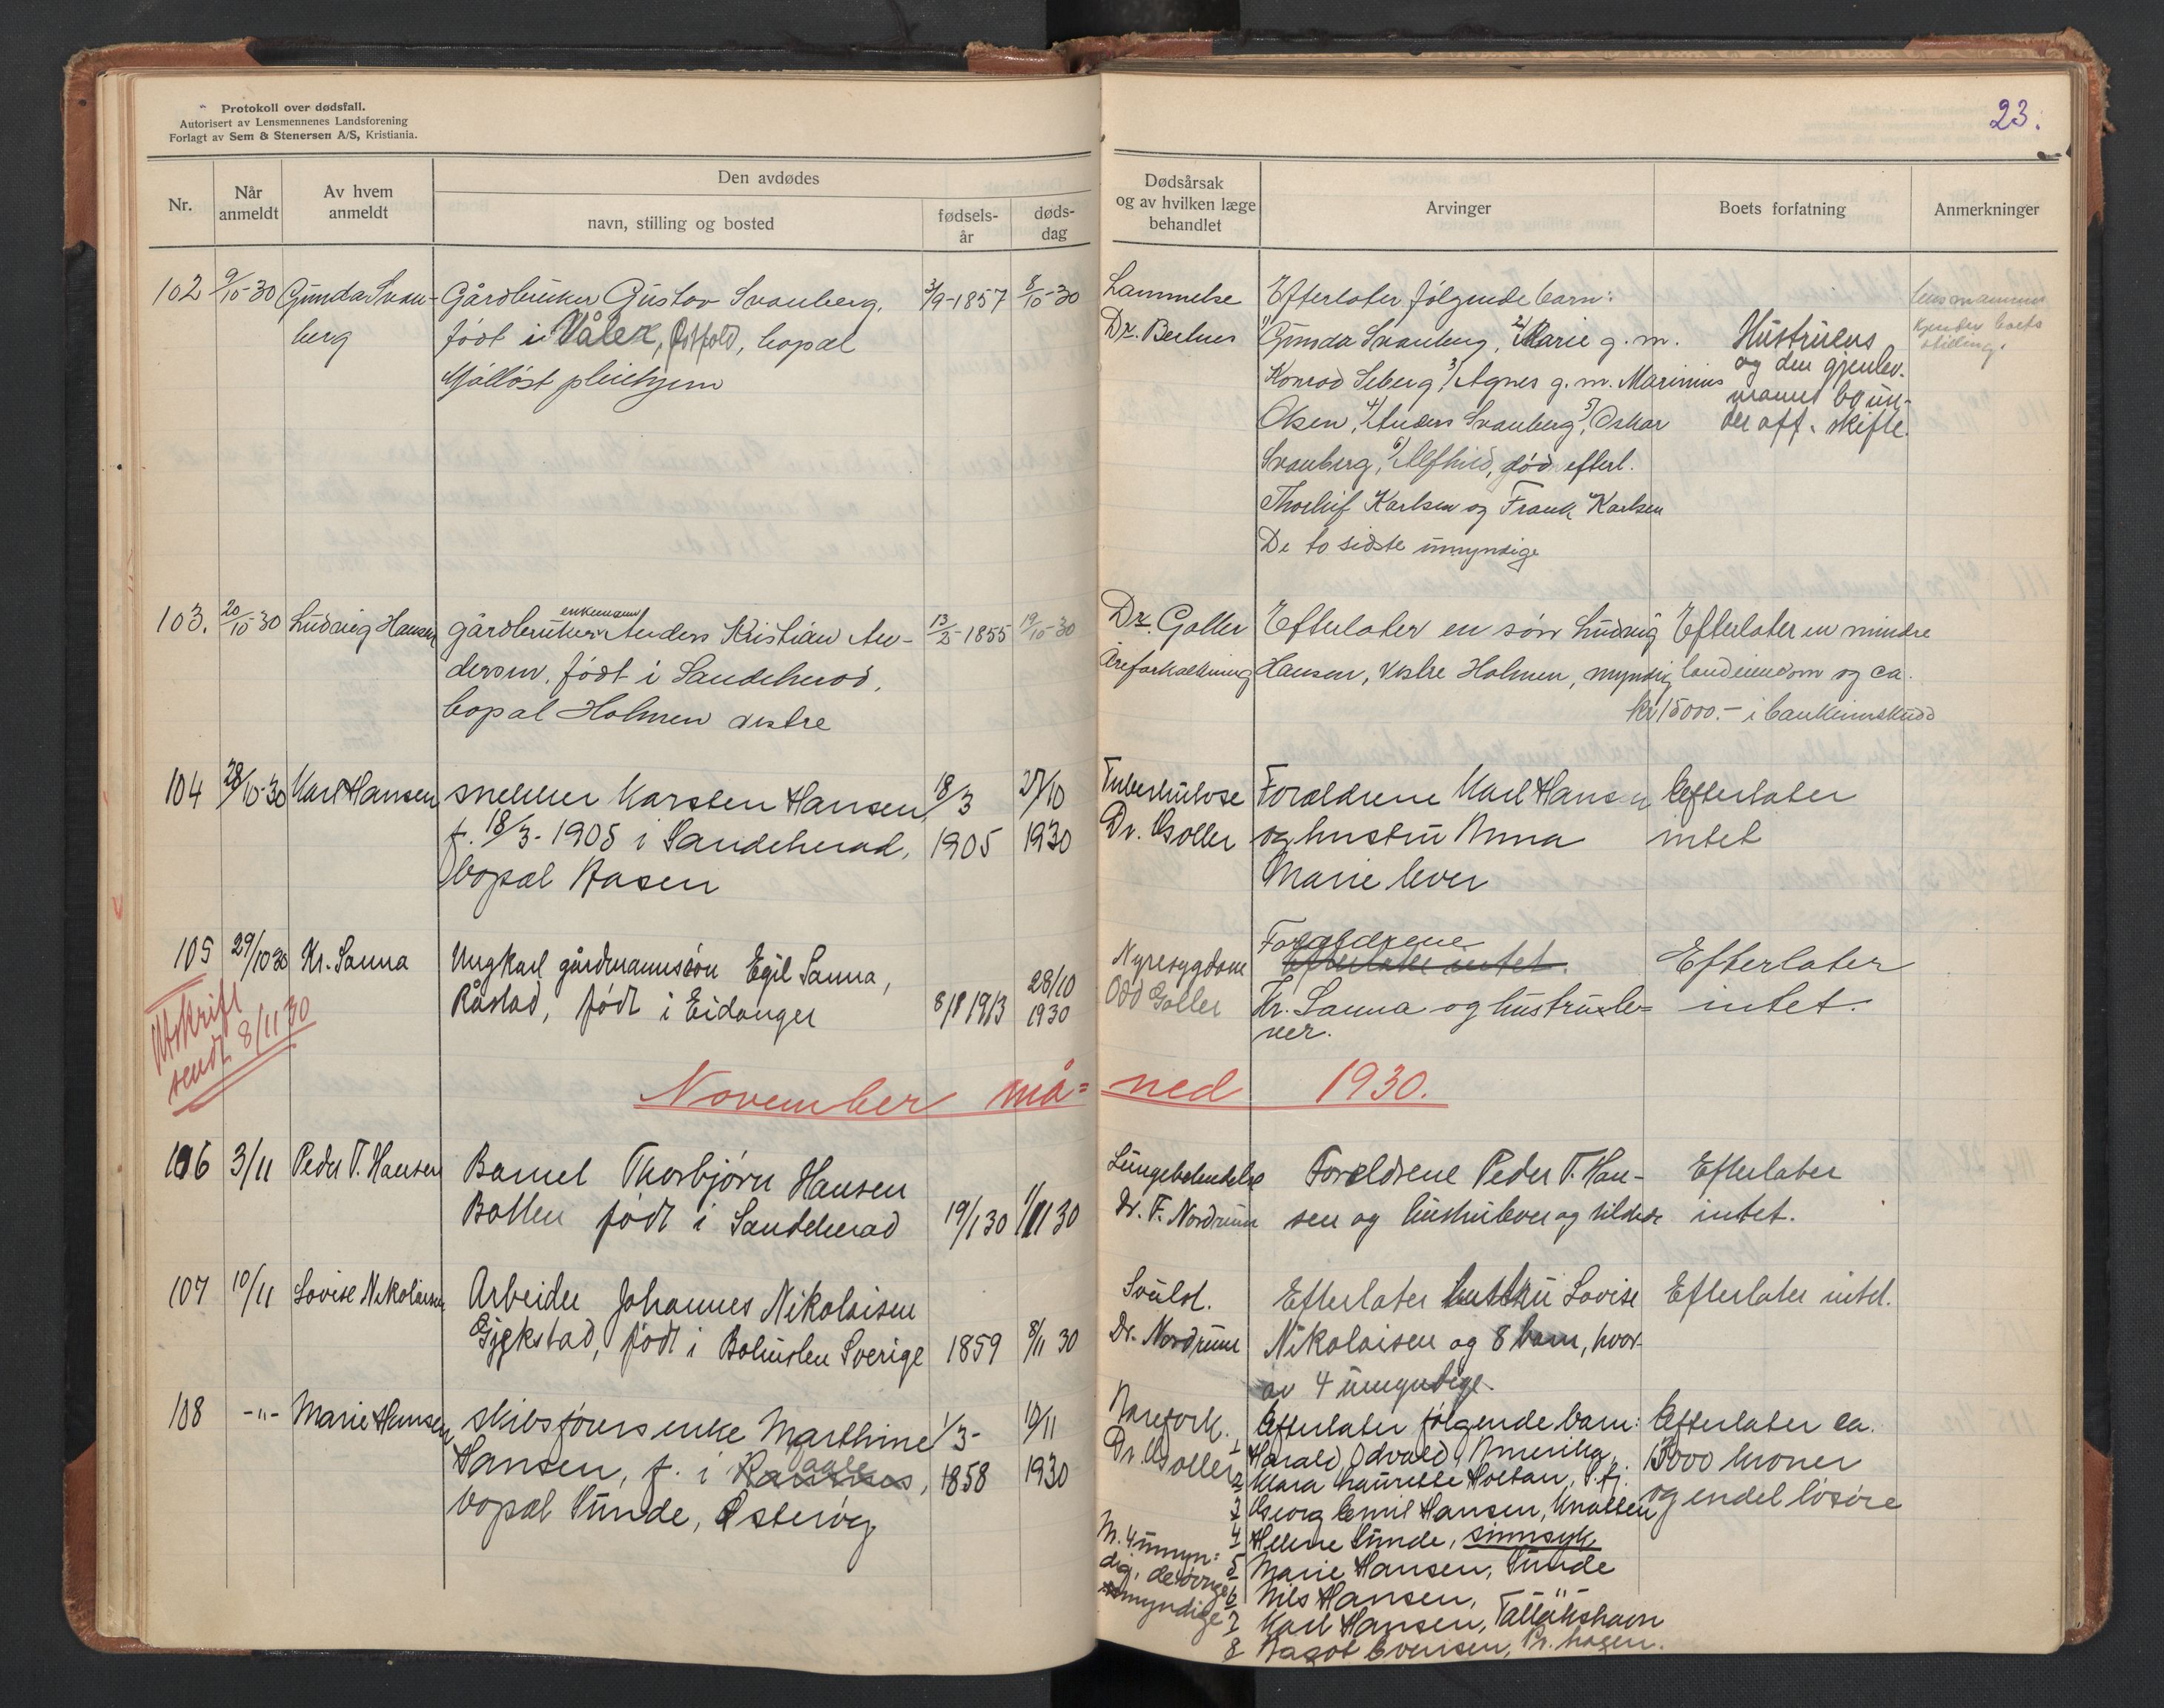 Protokoll over dødsfall.
Autorisert av Lensmennenes Landsforening
Forlagt av Sem & Stenersen A/S, Kristiania.
23.
Nr.
Når anmeldt
Av hvem anmeldt
Den avdødes
navn, stilling og bosted
fødsels-år
døds-dag
Dødsårsak og av hvilken læge behandlet
Arvinger
Boets forfatning
Anmerkninger
102 9/10-30 Gunda Svan-
berg
Gårdbruker Gustav Svanberg,
født i Våler, Østfold, bopæl
Mjølløst pleiehjem
3/9-1857
8/10-30
Lammelse
Dr. Bertnes
Efterlater følgende barn:
1) Gunda Svanberg, 2) Marie g. m.
Konrad Seberg, 3) Agnes g. m. Marinius
Olsen, 4) Anders Svanberg, 5) Oskar
Svanberg, 6) Alfhild, død, efterl.
Thorleif Karlsen og Frank Karlsen
De to sidste umyndige
Hustruens
og den gjenlev.
mannes bo un-
der off. skifte.
lensmannen
kjender boets
stilling.
103. 20/10-30 Ludvig Hansen
enkemann
gårdbruker Anders Kristian An-
dersen, født i Sandeherad,
bopæl Holmen vestre
13/2-1855
19/10-30
Dr. Galler
Åreforkalkning
Efterlater en sön Ludvig
Hansen, vestre Holmen, myndig
Efterlater en mindre
landeiendom og ca.
kr 15000.- i bankinnskudd
104 28/10-30 Karl Hansen
snekker Karsten Hansen,
f. 18/3-1905 i Sandeherad,
bopæl Aasen
18/3
1905
27/10
1930
Tuberkulose
Dr. Goller
Forældrene Karl Hansen
og hustru Anna
Marie lever
Efterlater
intet
105 29/10 30 Kr. Sanna
Ungkarl gårdmannssön Egil Sanna,
Råstad, født i Eidanger
8/8 1913
28/10
1930
Nyresygdom
Odd Goller
Forældrene
Efterlater intet.
Kr. Sanna og hustru le=
ver.
Efterlater
intet.
Utskrift
sendt 8/11 30
November må=ned 1930.
106 3/11 Peder T. Hansen
Barnet Thorbjørn Hansen
født i Sandeherad
19/1 30
1/11 30
Lungebetendelse
Dr. F. Nordrum
Foreldrene Peder T. Han-
sen og hustru lever og
Efterlater
intet.
107 10/11 Lovise Nikolaisen
Arbeider Johannes Nikolaisen
Gjekstad, født i Bohuslen Sverige
1859
8/11 30
Svulst.
Dr. Nordrum
Efterlater hustru Lovise
Nikolaisen og 8 barn, hvor-
av 4 umyndige.
Efterlater intet.
108 -"- Marie Hansen
skibsförers enke Marthine
Hansen, f. i
bopæl Sunde, Österöy
1/3-
1858
10/11
1930
Aarefork.
Dr. Goller
Efterlater følgende barn:
1 Harald Odvald, Amerika,
2 Klara Laurette Holtan, S.fj.
3 Georg Emil Hansen, Knatten
4 Helene Sunde, sinnsyk
5 Marie Hansen, Sunde
6 Nils Hansen, "
7 Karl Hansen, Tallakshavn
8 Dagot Evensen, Br. hagen.
Efterlater ca.
13000 kroner
og endel lösöre
N. 4 umyn=
dig, de övrige
myndige